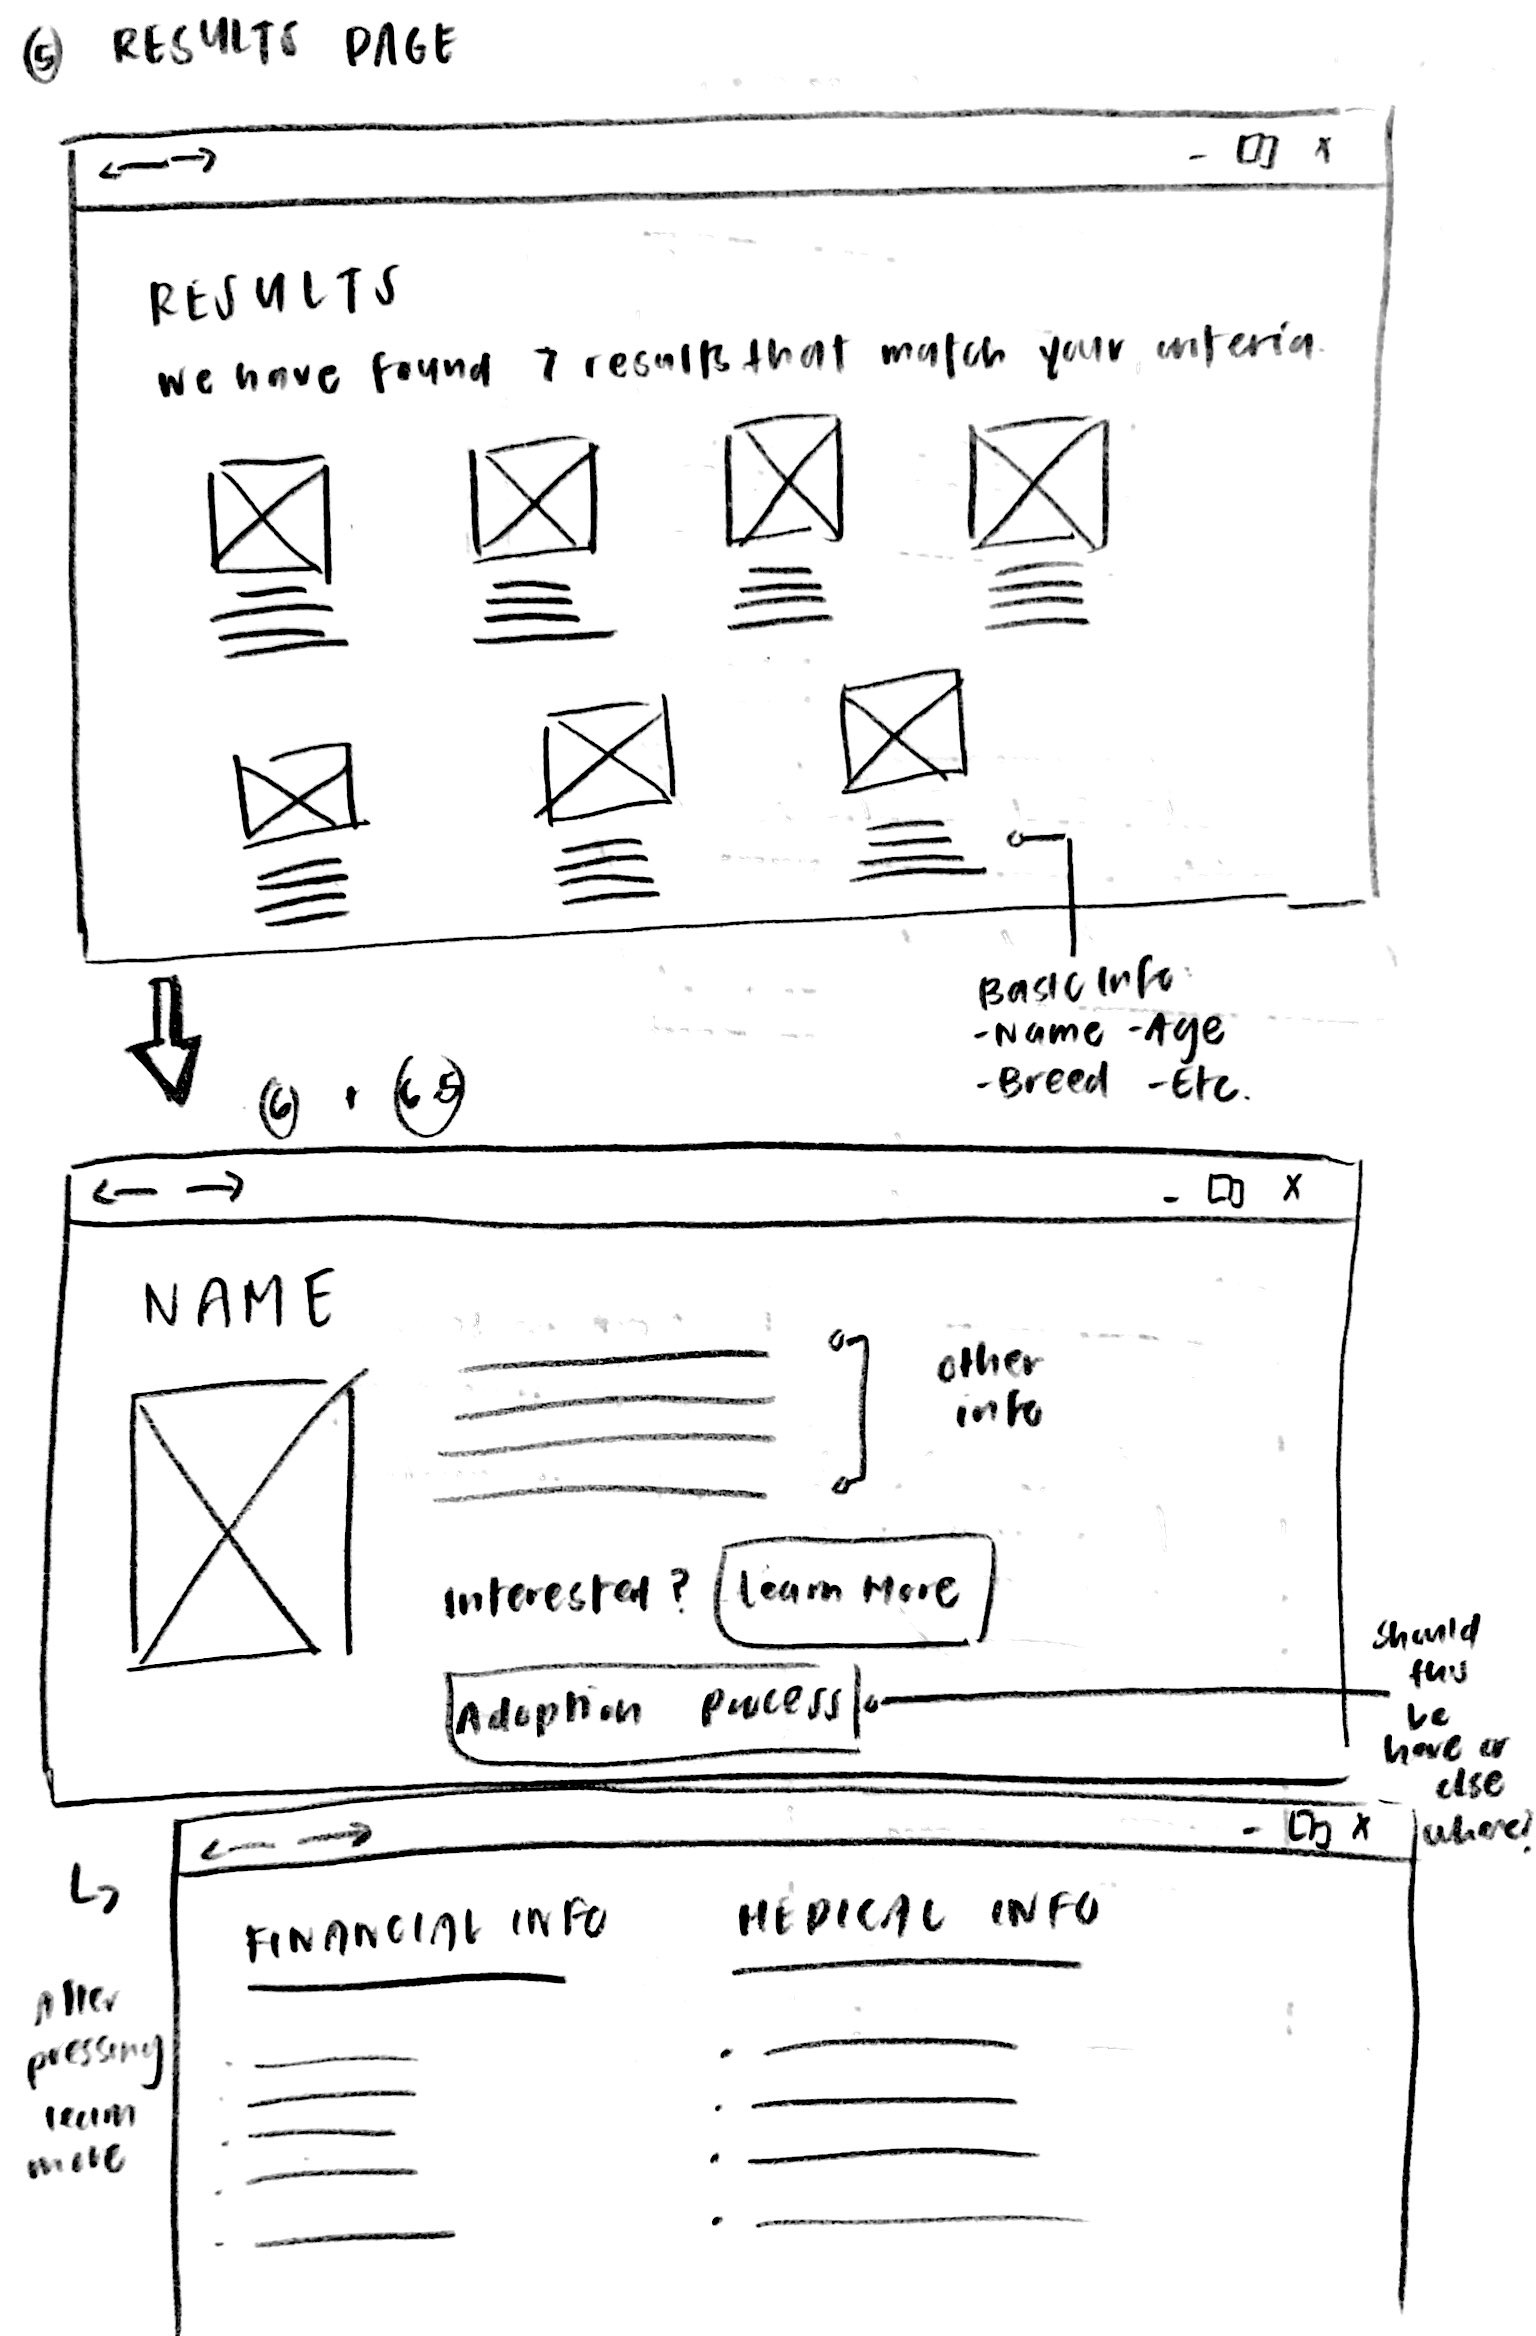 5 RESULTS PAGE
RESULTS
we have found 7 results that match your criteria.
Basic Info:
-Name -Age
-Breed -Etc.
6 + 6.5
NAME
other
info
Interested? Learn More
Adoption Process
should
this
be
here or
else
where?
FINANCIAL INFO MEDICAL INFO
After
pressing
learn
more